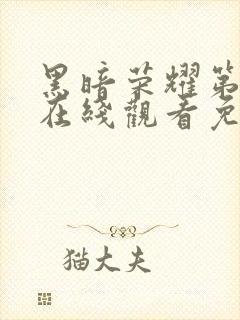 黑暗荣耀第
在綫觀看免
猫大夫